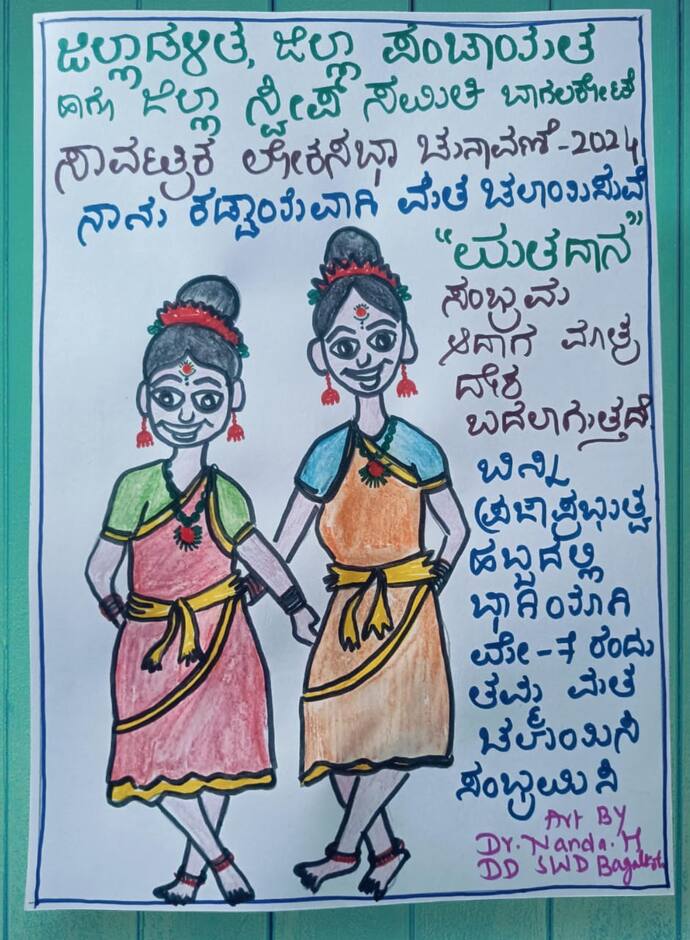 ಜಿಲ್ಲಾಡಳಿತ, ಜಿಲ್ಲಾ ಪಂಚಾಯತ
ಹಾಗೂ ಜಿಲ್ಲಾ ಸ್ವೀಪ್ ಸಮಿತಿ ಬಾಗಲಕೋಟೆ
ಸಾರ್ವತ್ರಿಕ ಲೋಕಸಭಾ ಚುನಾವಣೆ-2024
ನಾನು ಕಡ್ಡಾಯವಾಗಿ ಮತ ಚಲಾಯಿಸುವೆ
"ಮತದಾನ"
ಸಂಭ್ರಮ
ಆದಾಗ ಮಾತ್ರ
ದೇಶ
ಬದಲಾಗುತ್ತದೆ
ಬನ್ನಿ
ಪ್ರಜಾಪ್ರಭುತ್ವ
ಹಬ್ಬದಲ್ಲಿ
ಭಾಗಿಯಾಗಿ
ಮೇ-7 ರಂದು
ತಮ್ಮ ಮತ
ಚಲಾಯಿಸಿ
ಸಂಭ್ರಮಿಸಿ
Art BY
Dr. Nanda. H
DD SWD Bagalkot